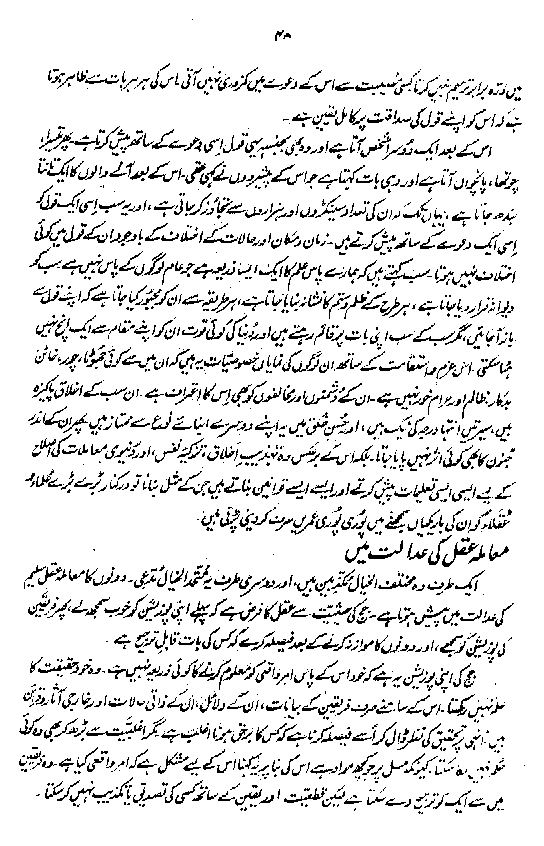 ۴۰
میں ذرہ برابر ترمیم نہیں کرتا کسی مصیبت سے اس کے دعوے میں کمزوری نہیں آتی۔ اس کی ہر ہر بات سے ظاہر ہوتا
ہے کہ اس کو اپنے قول کی صداقت پر کامل یقین ہے۔
اس کے بعد ایک دوسرا شخص آتا ہے اور وہ بھی بجنسہ یہی قول اسی دعوے کے ساتھ پیش کرتا ہے۔ پھر تیسرا
چوتھا، پانچواں آتا ہے اور وہی بات کہتا ہے جو اس کے پیشروؤں نے کہی تھی۔ اس کے بعد آنے والوں کا ایک تانتا
بندھ جاتا ہے، یہاں تک کہ ان کی تعداد سینکڑوں اور ہزاروں سے تجاوز کر جاتی ہے، اور یہ سب اسی ایک قول کو
اسی ایک دعوے کے ساتھ پیش کرتے ہیں۔ زمان و مکان اور حالات کے اختلاف کے باوجود ان کے قول میں کوئی
اختلاف نہیں ہوتا۔ سب کہتے ہیں کہ ہمارے پاس علم کا ایک ایسا ذریعہ ہے جو عام لوگوں کے پاس نہیں ہے۔ سب کو
دیوانہ قرار دیا جاتا ہے، ہر طرح کے ظلم و ستم کا نشانہ بنایا جاتا ہے، ہر طریقہ سے ان کو مجبور کیا جاتا ہے کہ اپنے قول سے
باز آ جائیں، مگر سب کے سب اپنی بات پر قائم رہتے ہیں اور دنیا کی کوئی قوت ان کو اپنے مقام سے ایک انچ نہیں
ہٹا سکتی۔ اس عزم و استقامت کے ساتھ ان لوگوں کی نمایاں خصوصیات یہ ہیں کہ ان میں سے کوئی جھوٹا، چور، خائن
بدکار، ظالم اور حرام خور نہیں ہے۔ ان کے دشمنوں اور مخالفوں کو بھی اس کا اعتراف ہے۔ ان سب کے اخلاق پاکیزہ
ہیں، سیرتیں انتہا درجہ کی نیک ہیں، اور حسن خلق میں یہ اپنے دوسرے ابنائے نوع سے ممتاز ہیں۔ پھر ان کے اندر
جنون کا بھی کوئی اثر نہیں پایا جاتا۔ بلکہ اس کے برعکس وہ تہذیب اخلاق، تزکیۂ نفس، اور دنیوی معاملات کی اصلاح
کے لیے ایسی ایسی تعلیمات پیش کرتے اور ایسے ایسے قوانین بناتے ہیں جن کے مثل بنانا تو درکنار بڑے بڑے علماء و
عقلاء کو ان کی باریکیاں سمجھنے میں پوری پوری عمریں صرف کر دینی پڑتی ہیں۔
معاملہ عقل کی عدالت میں
ایک طرف وہ مختلف الخیال مکذبین ہیں، اور دوسری طرف یہ متحد الخیال مدعی۔ دونوں کا معاملہ عقل سلیم
کی عدالت میں پیش ہوتا ہے۔ جج کی حیثیت سے عقل کا فرض ہے کہ پہلے اپنی پوزیشن کو خوب سمجھ لے، پھر فریقین
کی پوزیشن کو سمجھے، اور دونوں کا موازنہ کرنے کے بعد فیصلہ کرے کہ کس کی بات قابل ترجیح ہے۔
جج کی اپنی پوزیشن یہ ہے کہ خود اس کے پاس امر واقعی کو معلوم کرنے کا کوئی ذریعہ نہیں ہے۔ وہ خود حقیقت کا
علم نہیں رکھتا۔ اس کے سامنے صرف فریقین کے بیانات، ان کے دلائل، ان کے ذاتی حالات اور خارجی آثار و قرائن
ہیں۔ انہی پر تحقیق کی نظر ڈال کر اسے فیصلہ کرنا ہے کہ کس کا برحق ہونا اغلب ہے۔ مگر اغلبیت سے بڑھ کر بھی وہ کوئی
حکم نہیں لگا سکتا۔ کیونکہ مسل پر جو کچھ مواد ہے اس کی بنا پر یہ کہنا اس کے لیے مشکل ہے کہ امر واقعی کیا ہے۔ وہ فریقین
میں سے ایک کو ترجیح دے سکتا ہے لیکن قطعیت اور یقین کے ساتھ کسی کی تصدیق یا تکذیب نہیں کر سکتا۔